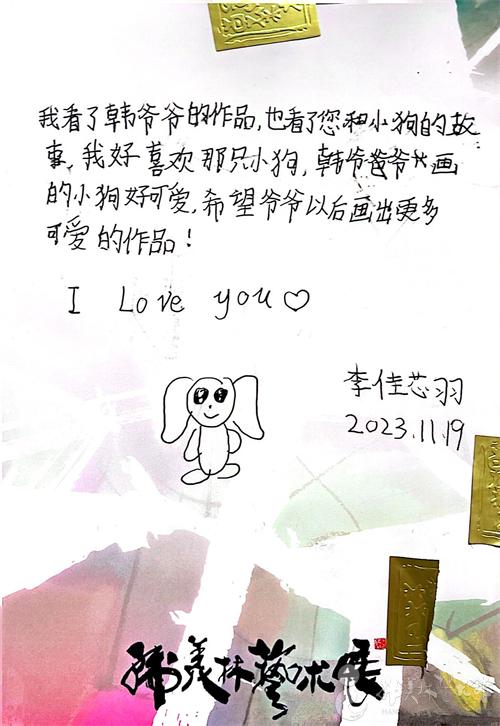 我看了韩爷爷的作品,也看了您和小狗的故
事,我好喜欢那只小狗,韩爷爷画
的小狗好可爱,希望爷爷以后画出更多
可爱的作品!
I Love you♡
李佳芯羽
2023.11.19
韩义林藝术展